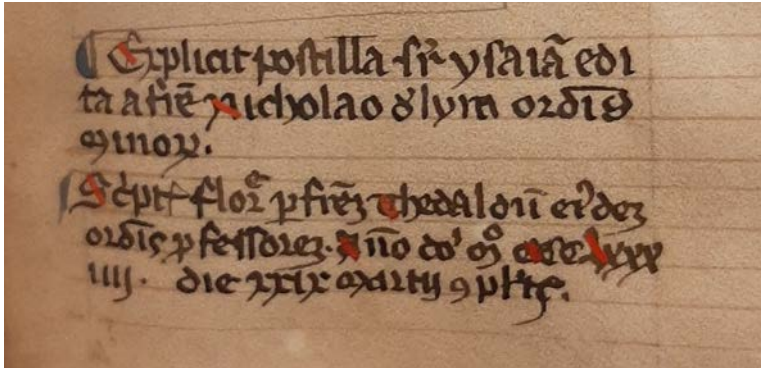 ¶ Explicit postilla sr̃ ysaiã edi
ta a fr̃e nicholao d̕ lyra ordĩs
minoꝝ.
¶ Sc̕pt flor̃ ꝑ frẽꝫ Thedaldũ eiꝰdeꝫ
ordĩs ꝓfessoreꝫ. Año do' mͦ ccc lxxx
iiij. die xxix martij ꝯpl'